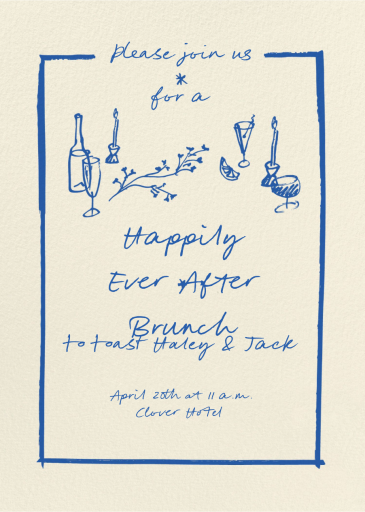 please join us
for a
Happily
Ever After
Brunch
to toast Haley & Jack
April 20th at 11 a.m.
Clover Hotel